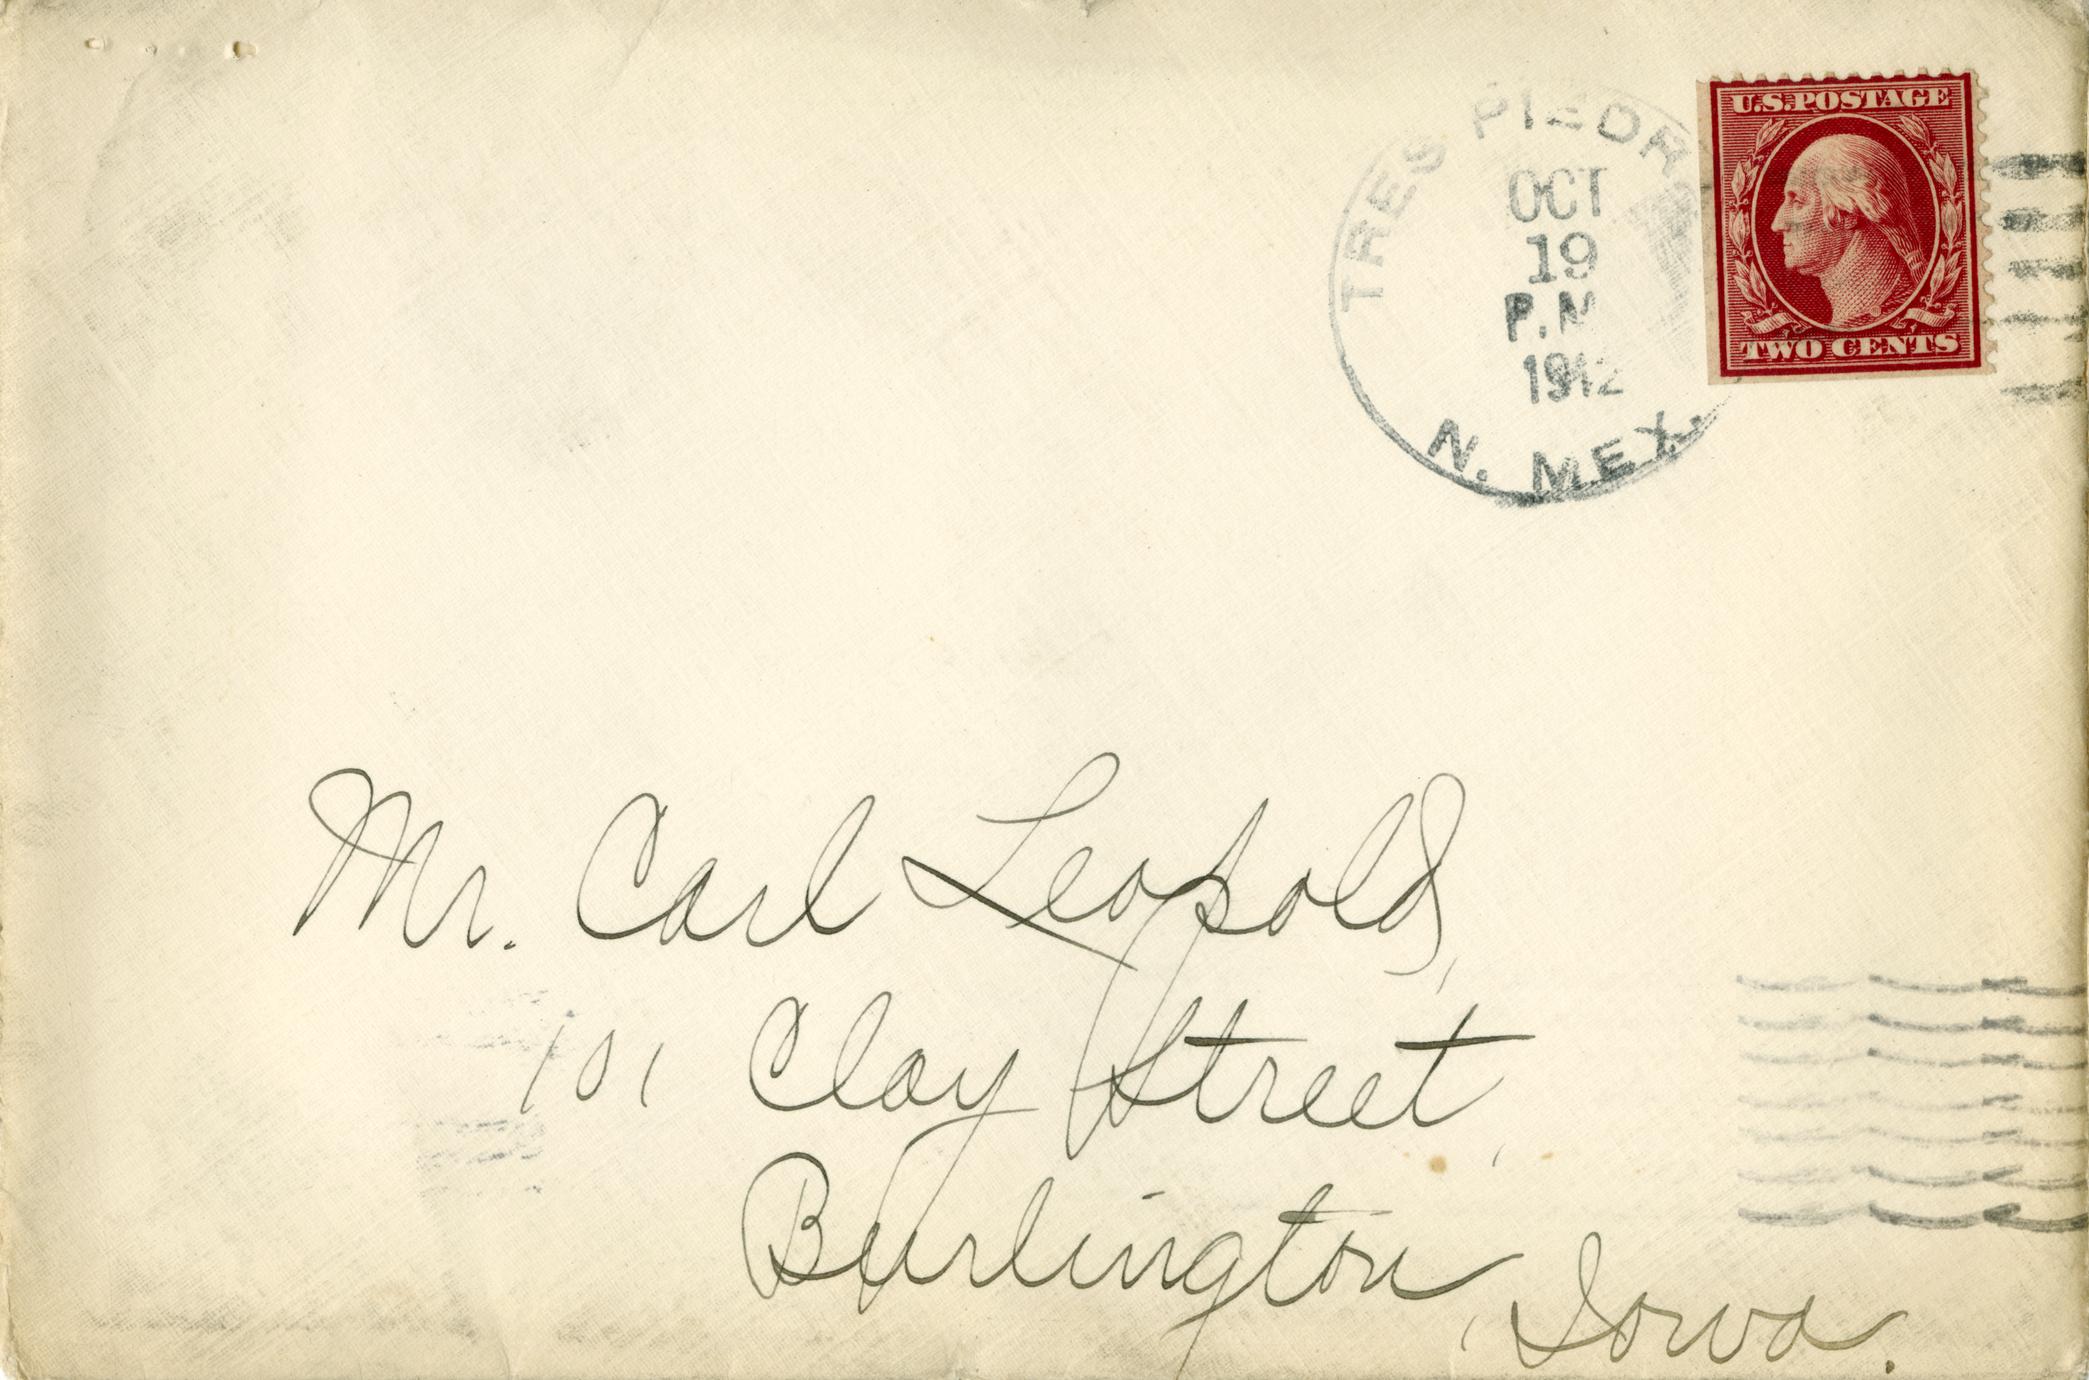 U.S.POSTAGE
TWO CENTS
TRES PIEDR
OCT
19
P.M
1912
N. MEX.
Mr. Carl Leopold,
101 Clay Street,
Burlington, Iowa.